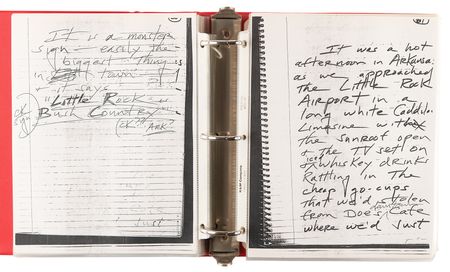 It is a monster
sign - easily the
biggest thing
in town - &
it says
"Little Rock is
Bush Country"
(OK?? Ark)
Just
It was a hot
afternoon in Arkansas
as we approached
the Little Rock
Airport in a
long white Cadillac
Limosine with
the sunroof open
& the TV set on
& whiskey drinks
Rattling in the
cheap go-cups
that we'd stolen
from Doe's Cafe
where we'd just